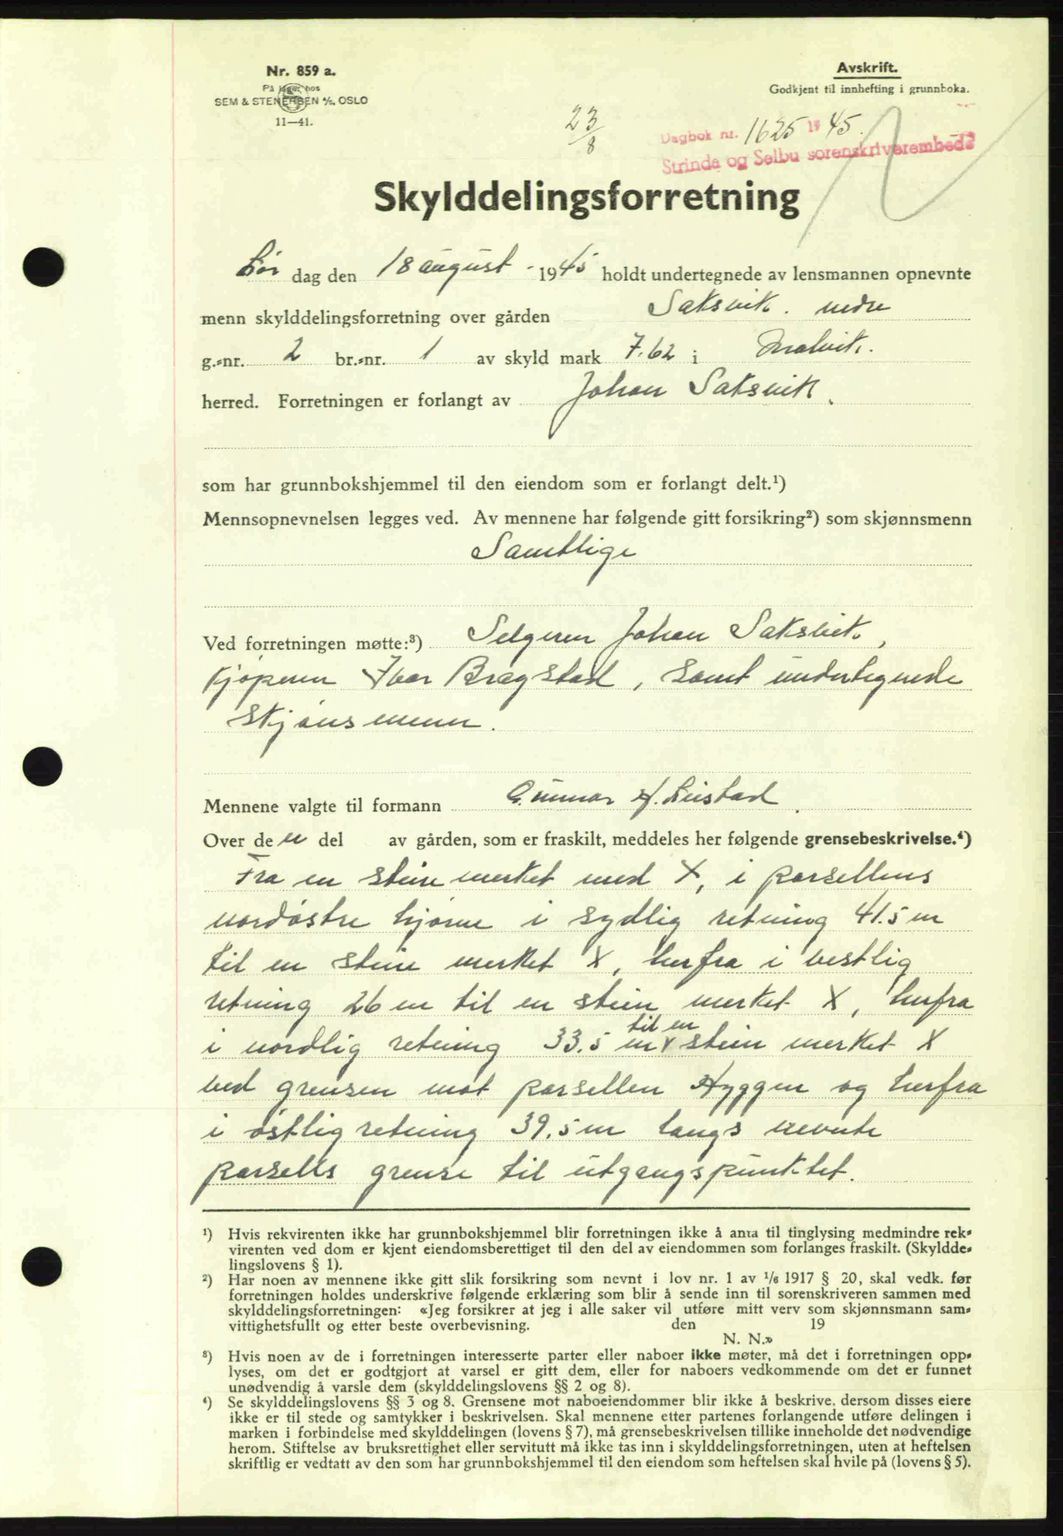 Nr. 859 a.
På lager hos
SEM & STENERSEN A/S, OSLO
11—41.
Avskrift.
Godkjent til innhefting i grunnboka.
23/8
Dagbok nr. 1625 19 45.
Strinda og Selbu sorenskriverembede
Skylddelingsforretning
Lør dag den 18 august - 1945 holdt undertegnede av lensmannen opnevnte
menn skylddelingsforretning over gården Saksvik nedre
g.-nr. 2 br.-nr. 1 av skyld mark 7.62 i Malvik.
herred. Forretningen er forlangt av Johan Saksvik.
som har grunnbokshjemmel til den eiendom som er forlangt delt.¹)
Mennsopnevnelsen legges ved. Av mennene har følgende gitt forsikring²) som skjønnsmenn
Samtlige
Ved forretningen møtte:³) Selgeren Johan Saksvik,
kjøperen Ivar Bragstad, samt undertegnede
skjønsmenn.
Mennene valgte til formann Gunnar H. Leistad.
Over den del av gården, som er fraskilt, meddeles her følgende grensebeskrivelse.⁴)
Fra en stein merket med X, i parsellens
nordøstre hjørne i sydlig retning 41.5 m
til en stein merket X, herfra i vestlig
retning 26 m til en stein merket X, herfra
i nordlig retning 33.5 m til en stein merket X
ved grensen mot parsellen Hyggen og herfra
i østlig retning 39.5 m langs nevnte
parsells grense til utgangspunktet.
¹) Hvis rekvirenten ikke har grunnbokshjemmel blir forretningen ikke å anta til tinglysing medmindre rek-
virenten ved dom er kjent eiendomsberettiget til den del av eiendommen som forlanges fraskilt. (Skyldde-
lingslovens § 1).
²) Har noen av mennene ikke gitt slik forsikring som nevnt i lov nr. 1 av 1/6 1917 § 20, skal vedk. før
forretningen holdes underskrive følgende erklæring som blir å sende inn til sorenskriveren sammen med
skylddelingsforretningen: «Jeg forsikrer at jeg i alle saker vil utføre mitt verv som skjønnsmann sam-
vittighetsfullt og etter beste overbevisning. den 19
N. N.»
³) Hvis noen av de i forretningen interesserte parter eller naboer ikke møter, må det i forretningen opp-
lyses, om det er godtgjort at varsel er gitt dem, eller for naboers vedkommende om det er funnet
unødvendig å varsle dem (skylddelingslovens §§ 2 og 8).
⁴) Se skylddelingslovens §§ 3 og 8. Grensene mot naboeiendommer blir ikke å beskrive, dersom disses eiere
ikke er til stede og samtykker i beskrivelsen. Skal mennene etter partenes forlangende utføre delingen i
marken i forbindelse med skylddelingen (lovens § 7), må grensebeskrivelsen tillike inneholde det nødvendige
herom. Stiftelse av bruksrettighet eller servitutt må ikke tas inn i skylddelingsforretningen, uten at heftelsen
skriftlig er vedtatt av den som har grunnbokshjemmel til den eiendom som heftelsen skal hvile på (lovens § 5).